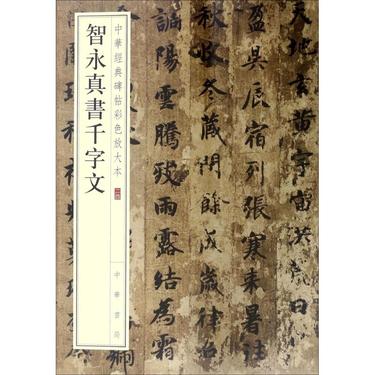 天地玄黃宇宙洪
盈昃辰宿列張寒来暑
收冬藏閏餘成歲律
調陽雲騰致雨露結為霜
中華經典碑帖彩色放大本
智永真書千字文
中華書局